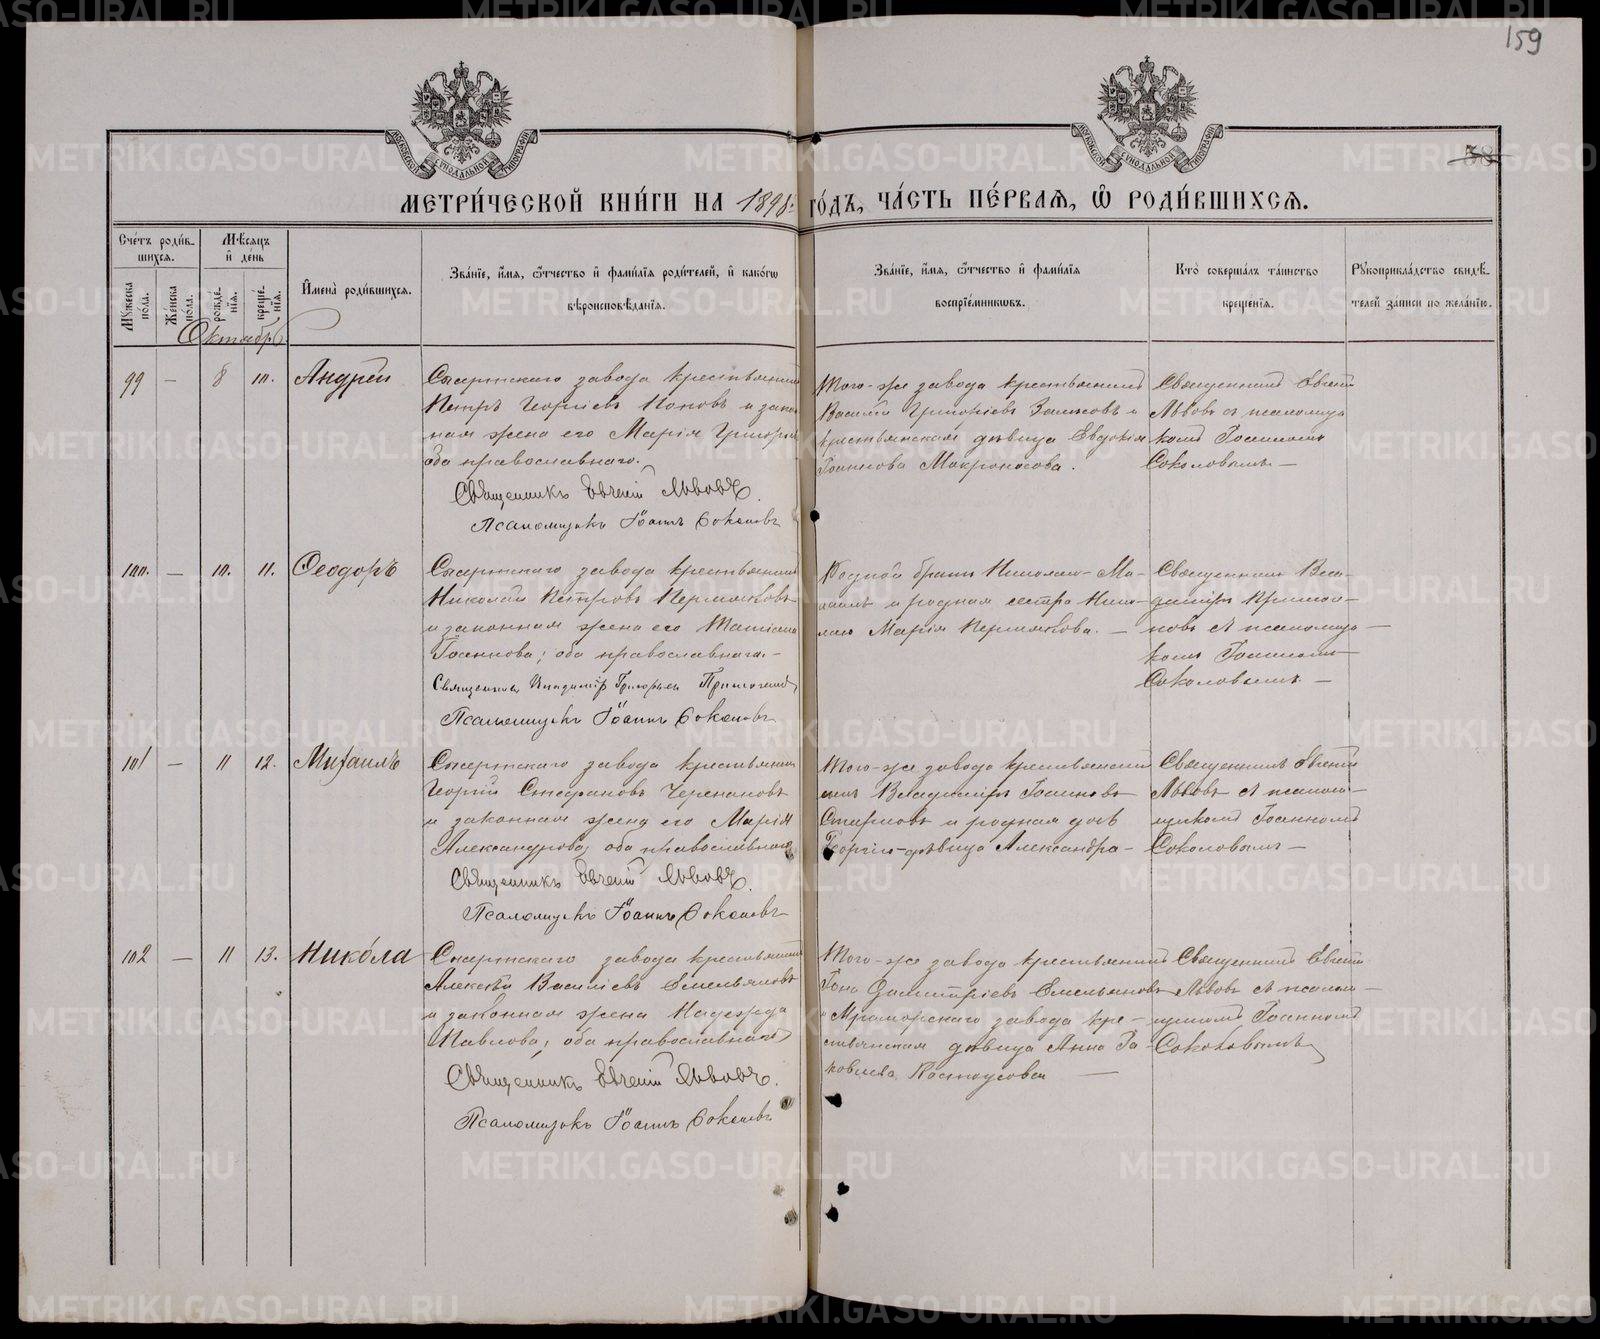 159
МОСКОВСКОЙ СѴНОДАЛЬНОЙ ТИПОГРАФІИ
МОСКОВСКОЙ СѴНОДАЛЬНОЙ ТИПОГРАФІИ
38
МЕТРИ́ЧЕСКОЙ КНИ́ГИ НА 1898 го́дъ, ЧА́СТЬ ПЕ́РВАЯ, Ѡ РОДИ́ВШИХСЯ.
Сче́тъ роди́в-
шихся.
Мѣсяцъ
и де́нь
Мꙋжеска по́ла.
Же́нска по́ла.
рожде́нїя.
креще́нїя.
Имена̀ роди́вшихся.
Зва́нїе, и́мя, ѻ҆́тчество и фами́лїя роди́телей, и како́гѡ
вѣроисповѣ́данїя.
Зва́нїе, и́мя, ѻ҆́тчество и фами́лїя
воспрїе́мникѡвъ.
Кто̀ соверша́лъ та́инство
креще́нїя.
Рꙋкоприкла́дство свидѣ́-
телей за́писи по жела́нїю.
Октябрь
99 — 8 10. Андрей
Сысертскаго завода крестьянинъ
Петръ Георгіевъ Поповъ и закон
ная жена его Марія Григорьева
оба православнаго.
Священникъ Евгеній Львовъ.
Псаломщикъ Іоаннъ Соколовъ
Того-же завода крестьянинъ
Василій Григоріевъ и
крестьянская дѣвица Евдокія
Іоаннова Мокроносова.
Священникъ Евгеній
Львовъ съ псаломщи
комъ Іоанномъ
Соколовымъ —
100. — 10. 11. Ѳеодоръ
Сысертскаго завода крестьянинъ
Николай Петровъ Пермяковъ
и законная жена его Татіана
Іоаннова; оба православнаго. —
Священникъ Владиміръ Григорьевъ
Псаломщикъ Іоаннъ Соколовъ
Родной братъ Николаю — Ми-
хаилъ и родная сестра Нико-
лаю Марія Пермякова. —
Священникъ Вла-
диміръ
съ псаломщи —
комъ Іоанномъ
Соколовымъ. —
101 — 11 12. Михаилъ
Сысертскаго завода крестьянинъ
Георгій Стефановъ Черепановъ
и законная жена его Марія
Александрова, оба православнаго
Священникъ Евгеній Львовъ.
Псаломщикъ Іоаннъ Соколовъ
Того-же завода крестьянскій
сынъ Владиміръ Іоанновъ
Старковъ и родная дочь
Георгія — дѣвица Александра —
Священникъ Евгеній
Львовъ съ псалом —
щикомъ Іоанномъ
Соколовымъ —
102 — 11 13. Нико́лай
Сысертскаго завода крестьянинъ
Алексѣй Василіевъ Емельяновъ
и законная жена Надежда
Павлова; оба православнаго
Священникъ Евгеній Львовъ.
Псаломщикъ Іоаннъ Соколовъ
Того-же завода крестьянинъ
Іона Димитріевъ Емельяновъ
и Мраморскаго завода кре —
стьянская дѣвица Анна Іа-
ковлева Костоусова —
Священникъ Евгеній
Львовъ съ псалом —
щикомъ Іоанномъ
Соколовымъ
METRIKI.GASO-URAL.RU